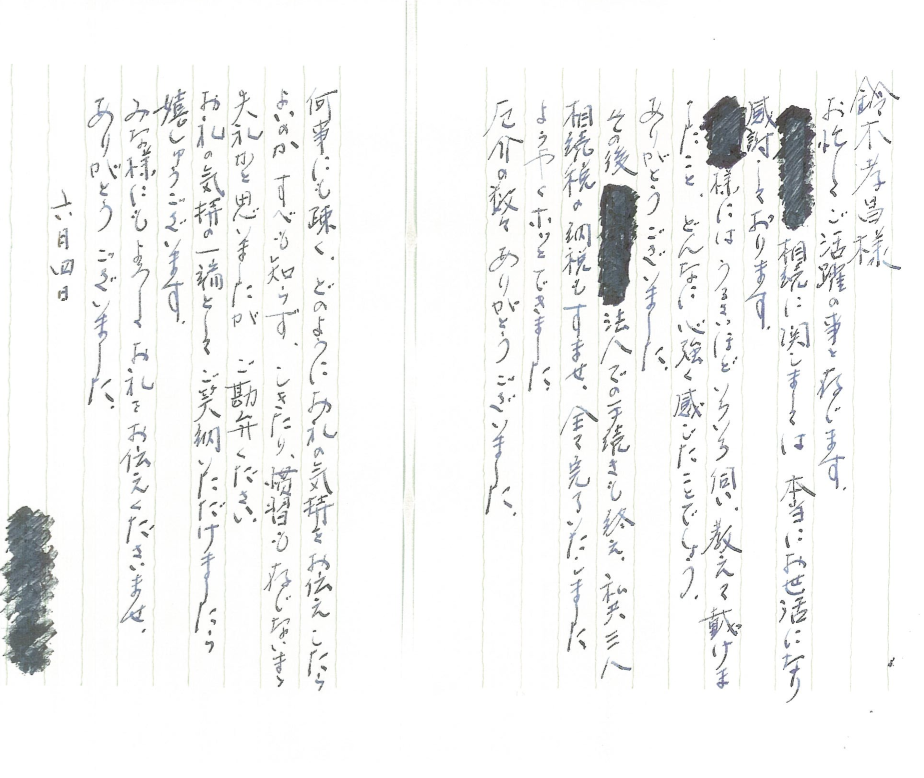 鈴木孝昌様
お忙しくご活躍の事と存じます。
相続に関しましては 本当にお世話になり
感謝しております。
様には うるさいほど いろいろ 伺い、教えて 戴けま
したこと、どんなに 心強く 感じたことでしょう。
ありがとう ございました。
その後 法人での手続きも 終え、私共三人
相続税の 納税も すませ、全て完了いたしました
ようやく ホッとできました。
厄介の数々 ありがとう ございました。
何事にも疎く、どのように お礼の気持を お伝えしたら
よいのか すべも知らず、しきたり、慣習も 存じないまま
失礼かと思いましたが ご勘弁ください
お礼の気持の一端として ご笑納いただけましたら
嬉しゅうございます。
みな様にもよろしく お礼を お伝えくださいませ。
ありがとう ございました。
六月四日